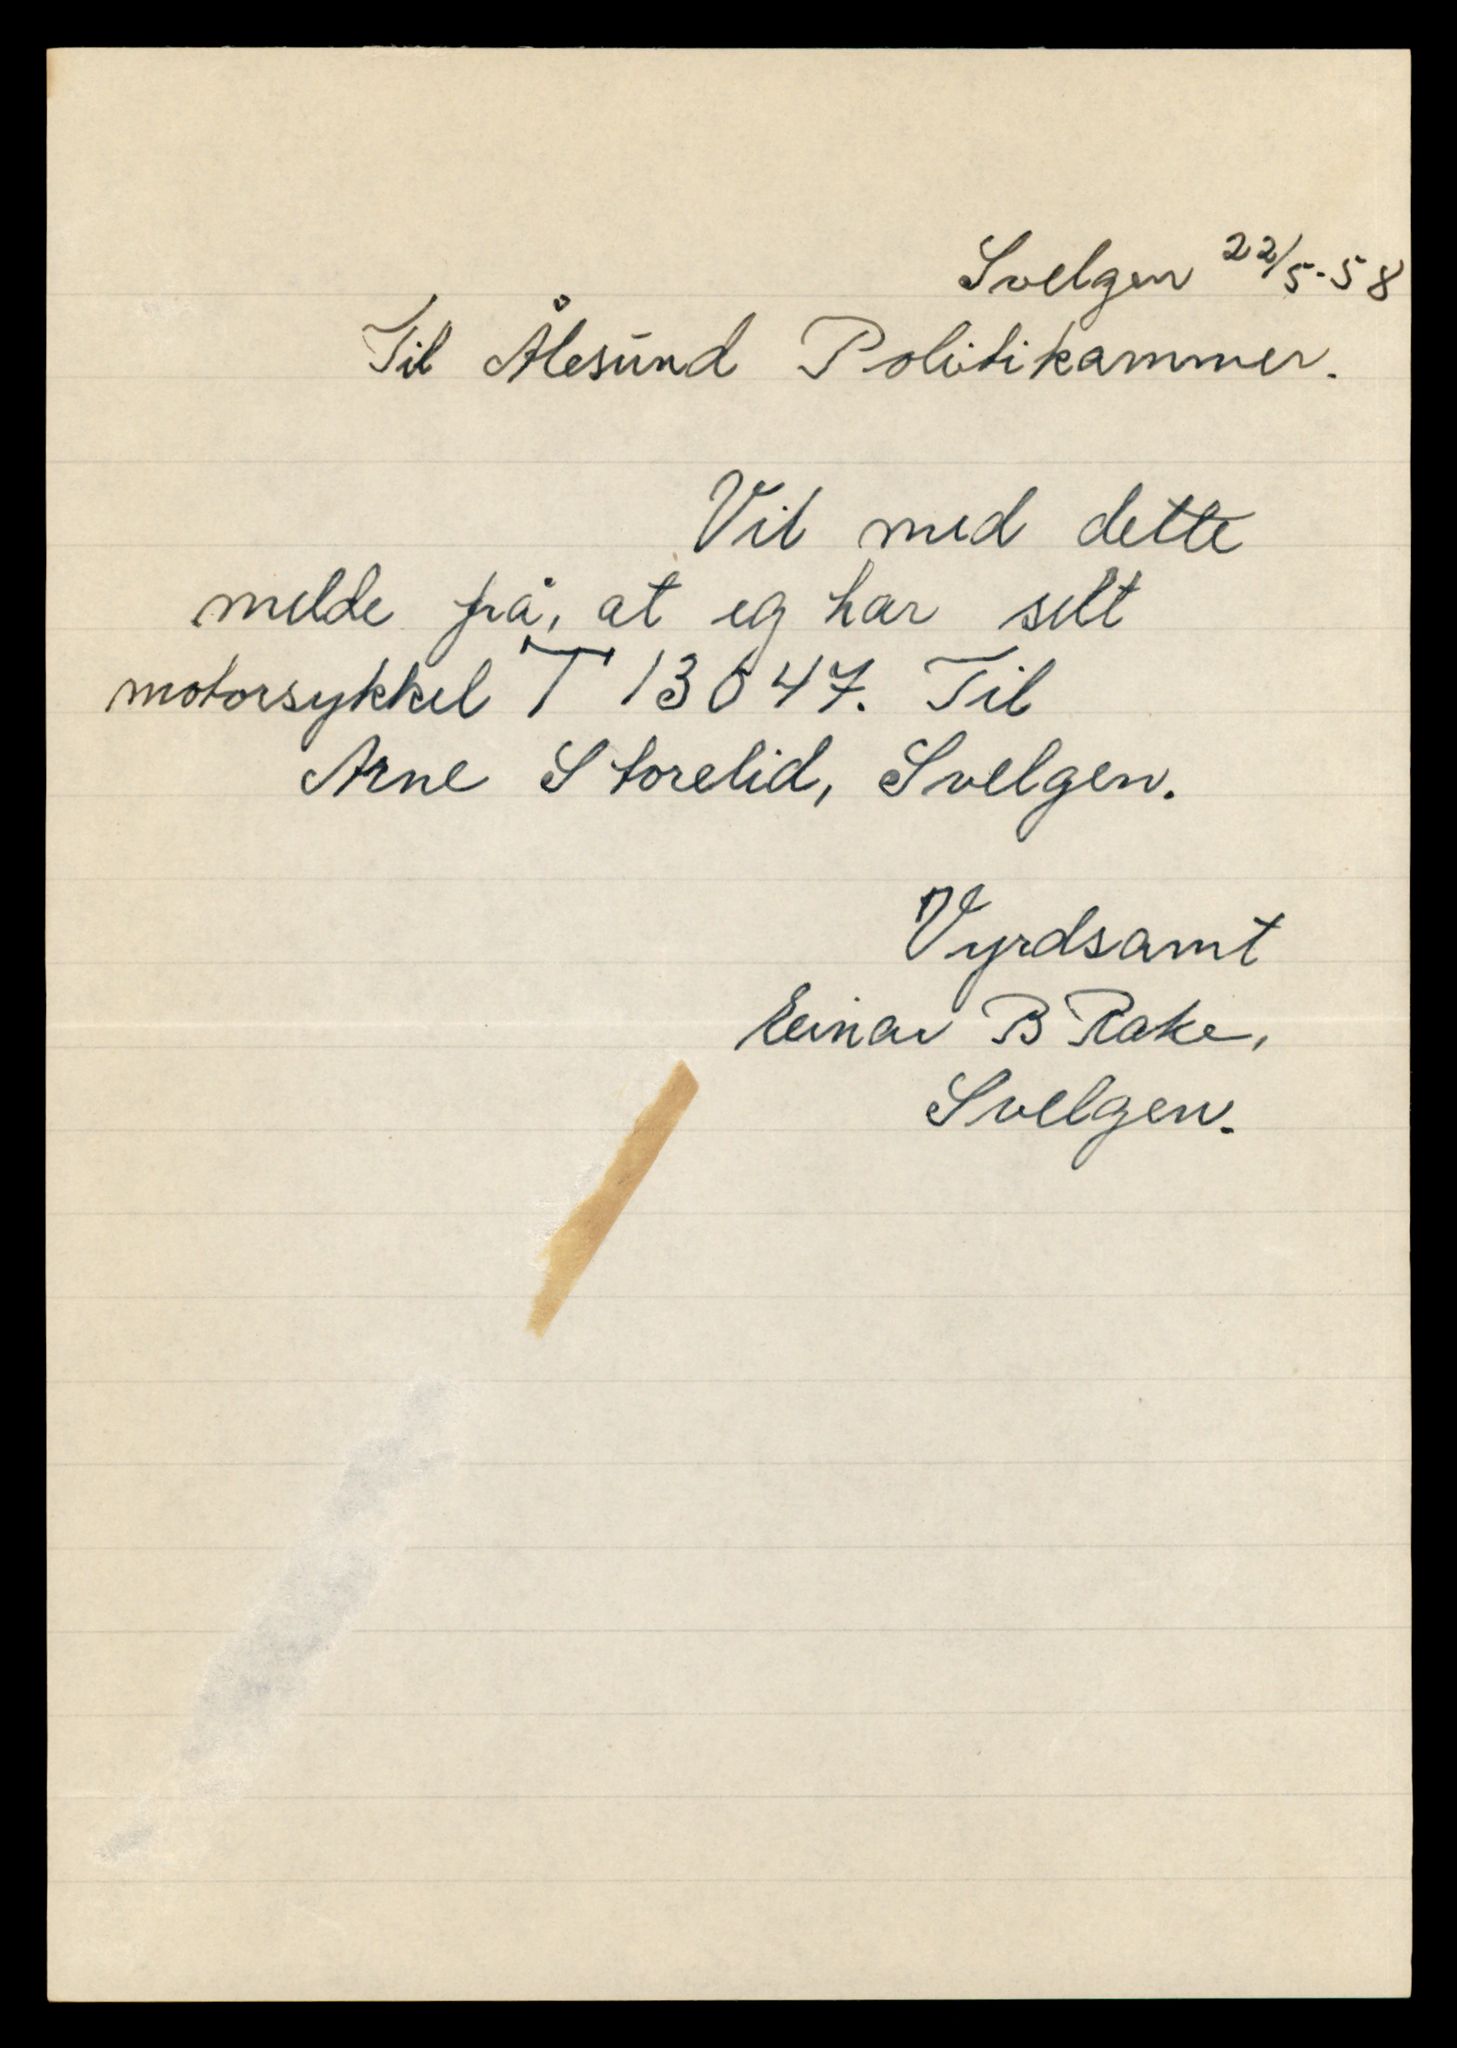 Svelgen 22/5-58
Til Ålesund Politikammer.
Vil med dette
melde frå, at eg har selt
motorsykkel T 13047. Til
Arne Storelid, Svelgen.
Vyrdsamt
Einar B Rake,
Svelgen.